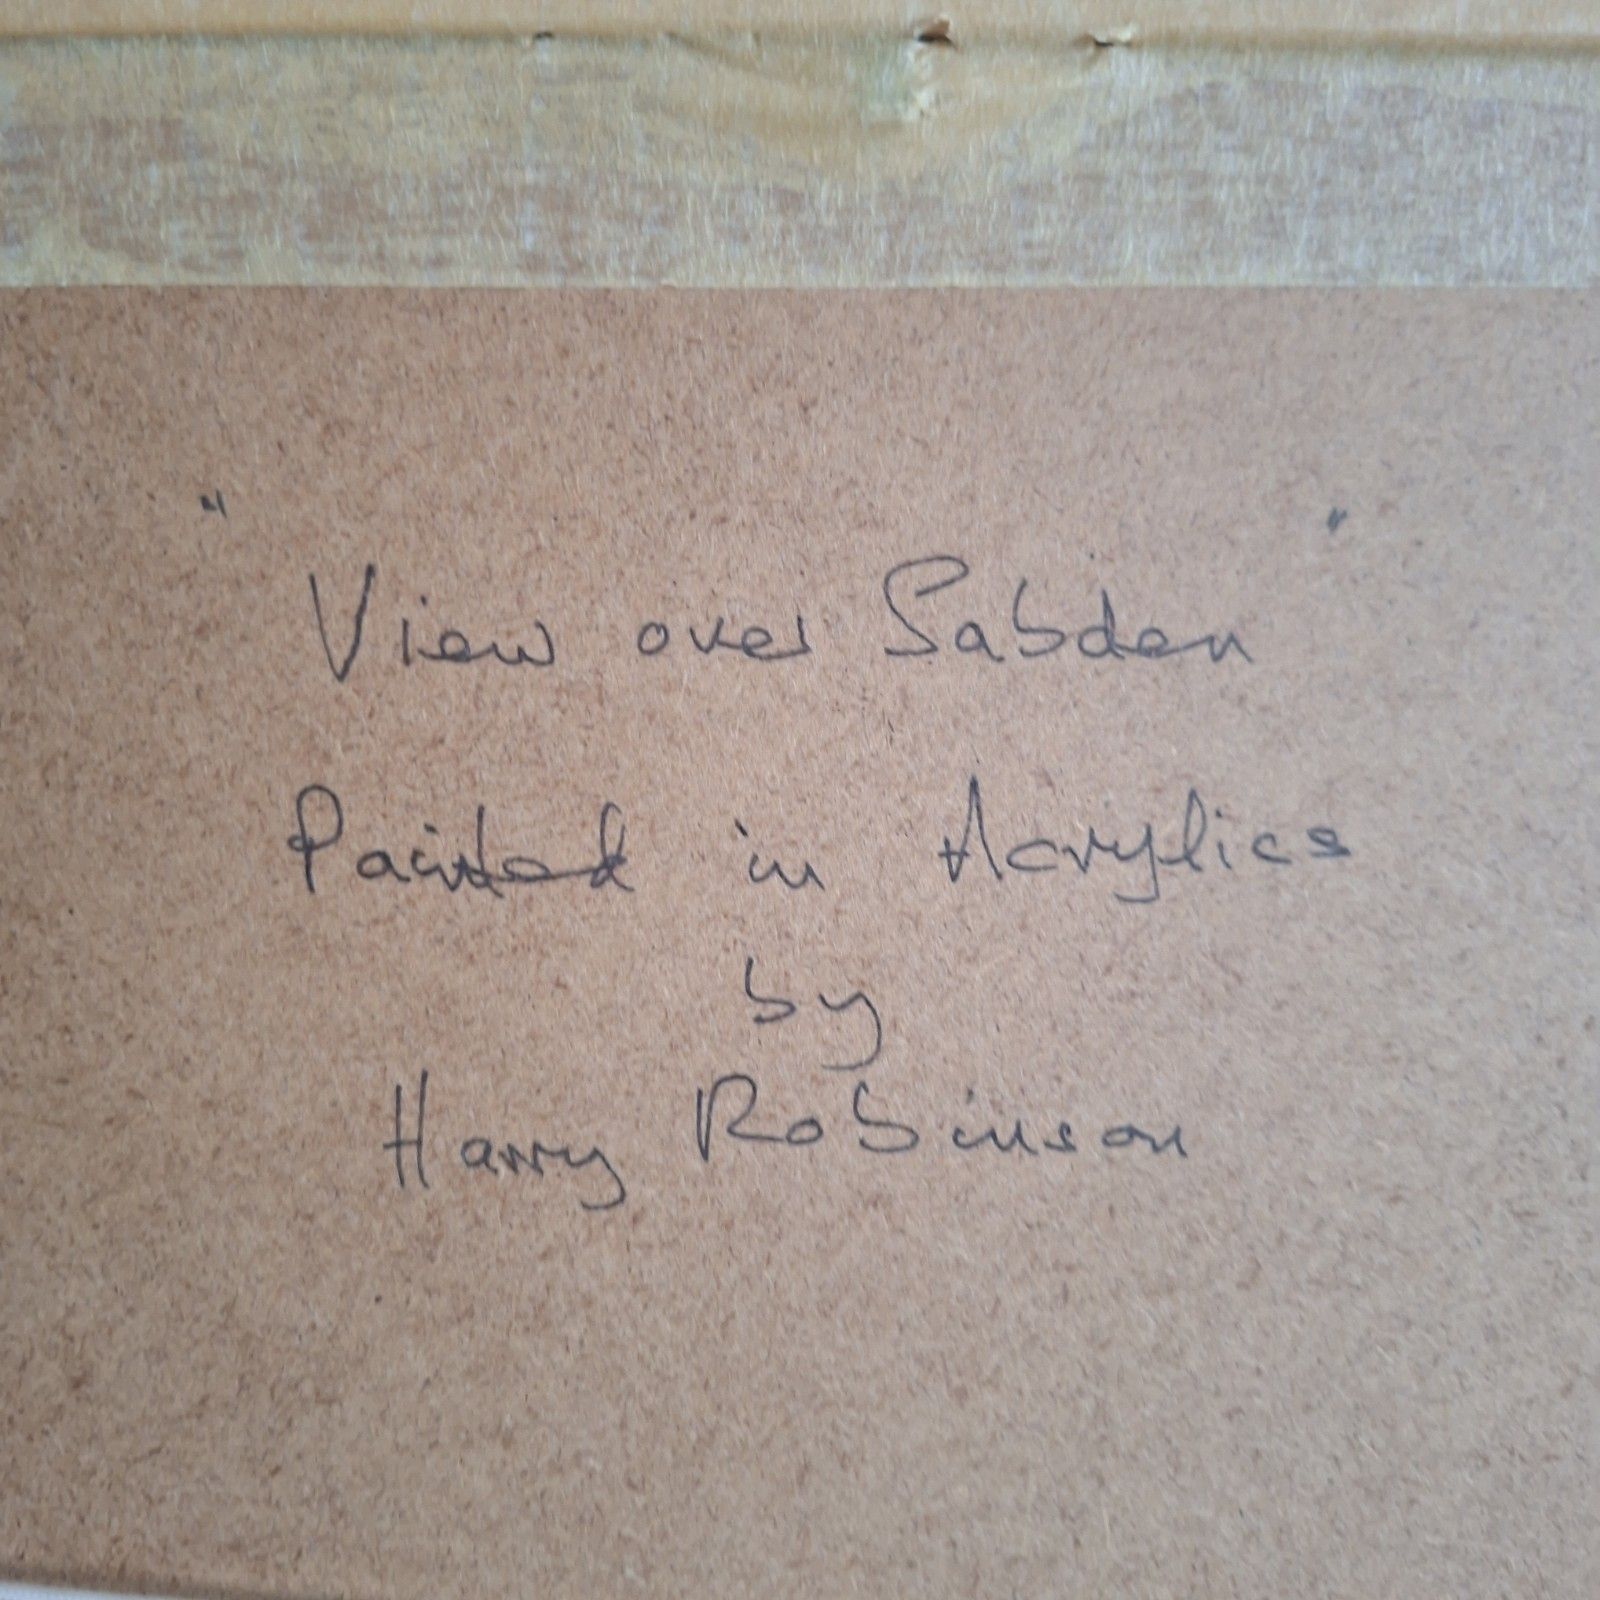 "View over Sabden"
Painted in Acrylics
by
Harry Robinson